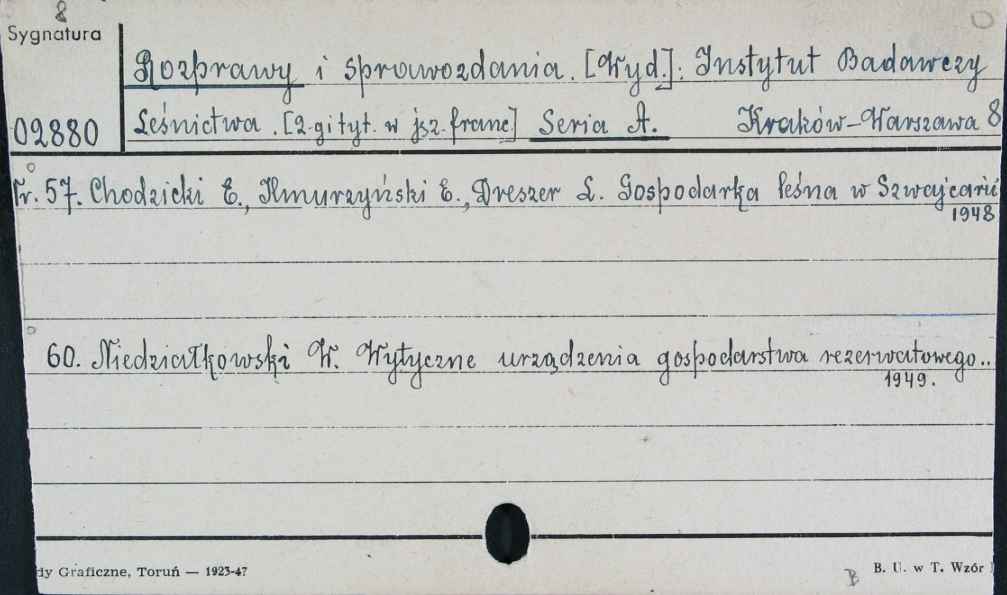 8
Sygnatura
Rozprawy i sprawozdania. [Wyd.]: Instytut Badawczy
02880 Leśnictwa. [2-gi tyt. w jęz. franc] Seria A. Kraków-Warszawa 8°
Nr. 57. Chodzicki E., Ilmurzyński E., Dreszer L. Gospodarka leśna w Szwajcarii
1948
60. Niedziałkowski W. Wytyczne urządzenia gospodarstwa rezerwatowego..
1949.
dy Graficzne, Toruń — 1923-47
B. U. w T. Wzór